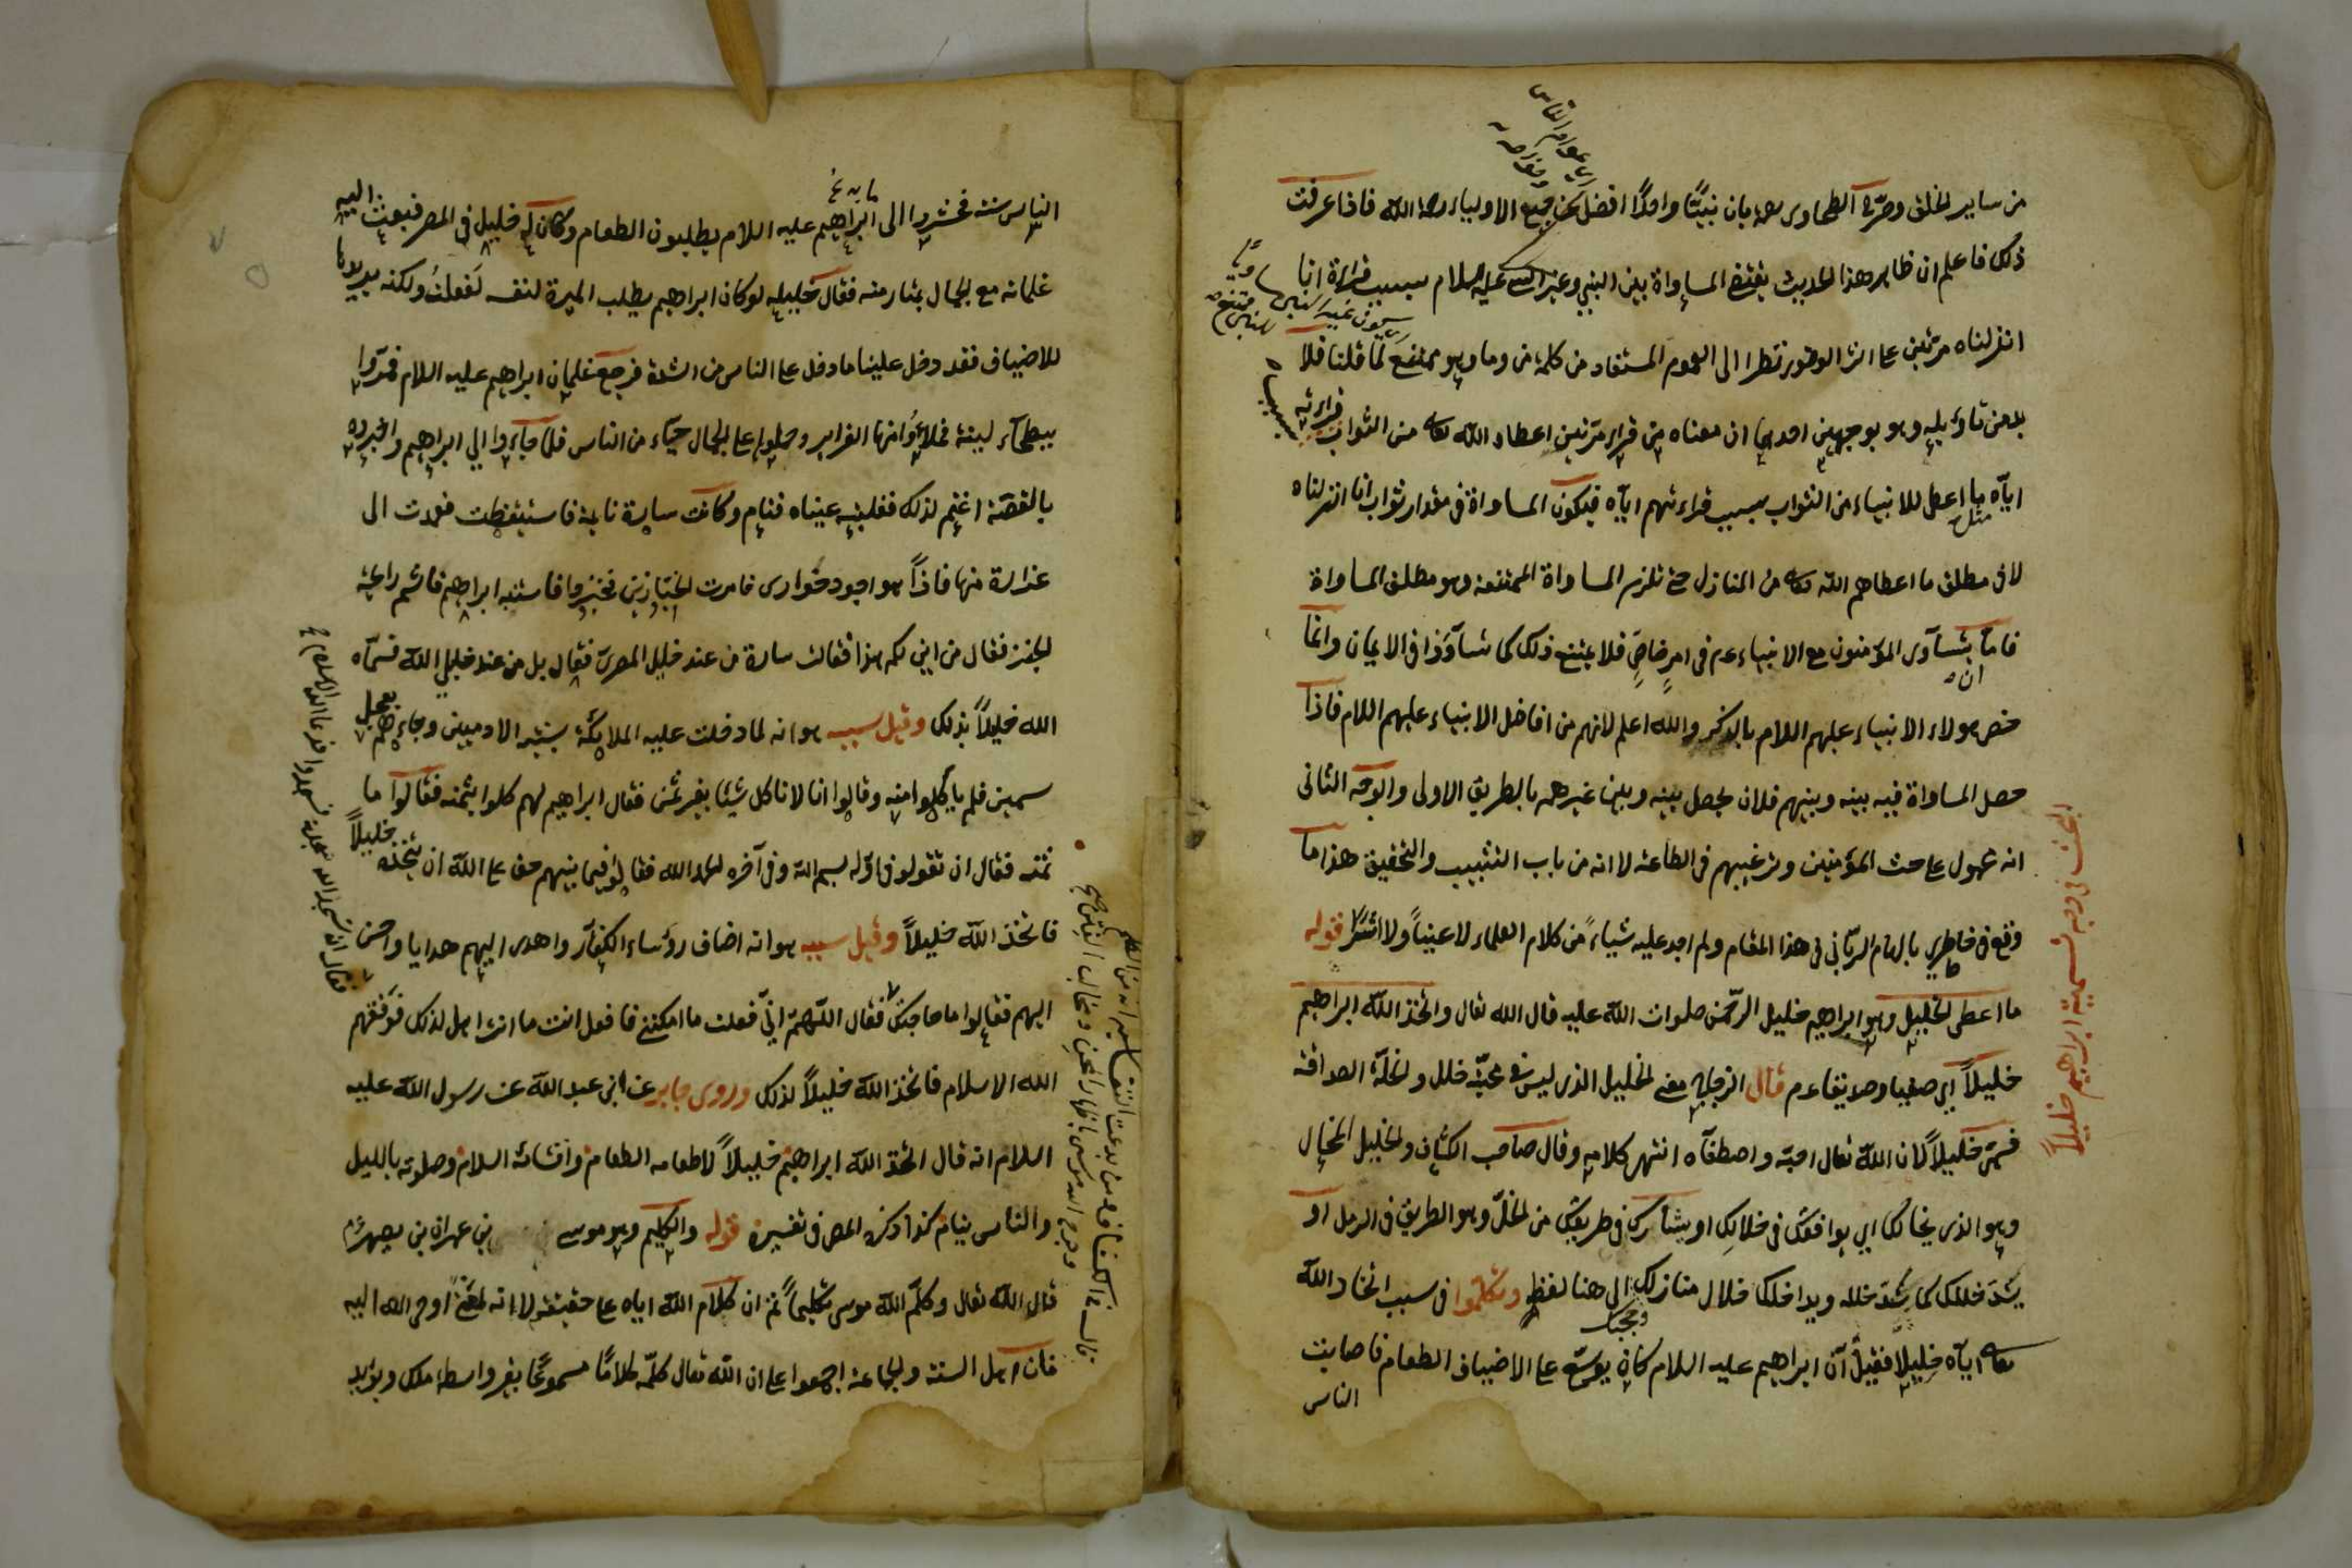 من ساير الخلق وصرّح الطحاوى رحمه بان نبيّنا واحدًا افضل من جميع الاولياء رحمه الله فاذا عرفت
ذلك فاعلم ان ظاهر هذا الحديث يقتضى المساواة بين النبي وغير النبي عليه السلام بسبب قراءة انا
انزلناه مرتين على اثر الوضوء نظرا الى العموم المستفاد من كلمة من وما وهو ممتنع لما قلنا فلا
بد من تاويله وهو بوجهين احدهما ان معناه من قراء مرتين اعطاه الله تعالى من الثواب
اياه ما اعطى للانبياء من الثواب بسبب قراءتهم اياه فيكون المساواة فى مقدار ثواب انا انزلناه
لا فى مطلق ما اعطاهم الله تعالى من المنازل حتى تلزم المساواة الممتنعة وهو مطلق المساواة
فاما تساوى المؤمنون مع الانبياء عم فى امر خاص فلا يمتنع ذلك كما تساووا فى الايمان وانما
خص هولاء الانبياء عليهم السلام بالذكر والله اعلم لانهم من افاضل الانبياء عليهم السلام فاذا
حصل المساواة فيه بينه وبينهم فلان يحصل بينه وبين غيرهم بالطريق الاولى والوجه الثانى
انه محمول على حث المؤمنين وترغيبهم فى الطاعة لا انه من باب التثبيب والتحقيق هذا ما
وقع فى خاطرى بالهام الربّانى فى هذا المقام ولم اجد عليه شياء من كلام العلماء لا عينا ولا اثرا قوله
ما اعطى الخليل وهو ابراهيم خليل الرحمن صلوات الله عليه قال الله تعالى واتخذ الله ابراهيم
خليلاً اي صفيا وصديقا عم قال الزجاج معنى الخليل الذى ليس فى محبته خلل والخلة الصداقة
فسمى خليلاً لان الله تعالى احبه واصطفاه انتهى كلامه وقال صاحب الكشاف والخليل المخال
وهو الذى يخالك اي يوافقك فى خلالك او يشاركك فى طريقتك من الخلّ وهو الطريق فى الرمل او
يسّد خللك كما تسدّ خلله ويداخلك خلال منازلك الى هنا لفظه وتكلموا فى سبب اتخاذ الله
تعالى اياه خليلا فقيل ان ابراهيم عليه السلام كان يوسّع على الاضياف الطعام فاصابت
الناس
البحث فى وجه تسمية ابراهيم خليلاً
الناس سنة فحشروا الى باب ابراهيم عليه السلام يطلبون الطعام وكان له خليل فى المصر فبعث اليه
غلمانه مع الجمال يمتار منه فقال خليله لو كان ابراهيم يطلب الميرة لنفسه لفعلت ولكنه يريدها
للاضياف فقد دخل علينا ما دخل على الناس من الشدة فرجع غلمان ابراهيم عليه السلام فمرّوا
ببطحاء لينة فملاؤا منها الغراير وحملوا على الجمال حياء من الناس فلما جاءوا الى ابراهيم واخبروه
بالقصة اغتم لذلك فغلبته عيناه فنام وكانت سارة نايمة فاستيقظت فعمدت الى
غرارة منها فاذا هو اجود حوارى فامرت الخبّازين فخبزوا فاستنبه ابراهيم فاشتم رايحة
الخبز فقال من اين لكم هذا فقالت سارة من عند خليل المصرى فقال بل من عند خليلى الله فسمّاه
الله خليلاً بذلك وقيل سببه هو انه لما دخلت عليه الملايكة بشبه الادميين وجاءهم بعجل
سمين فلم ياكلوا منه وقالوا انا لا ناكل شيئا بغير ثمن فقال ابراهيم لهم كلوا بثمنه فقالوا ما
ثمنه فقال ان تقولوا فى اوّله بسم الله وفى آخره الحمد لله فقالوا فيما بينهم حق على الله ان يتخذه خليلاً
فاتخذ الله خليلاً وقيل سببه هو انه اضاف رؤساء الكفار واهدى اليهم هدايا واحسن
اليهم فقالوا ما حاجتك فقال اللهم انى فعلت ما امكننى فافعل انت ما انت اهل لذلك فوفقهم
الله الاسلام فاتخذ الله خليلاً لذلك وروى جابر عن ابى عبد الله عن رسول الله عليه
السلام انه قال اتخذ الله ابراهيم خليلاً لاطعامه الطعام وافشائه السلام وصلوته بالليل
والناس نيام كذا ذكره المص فى تفسيره قوله والكليم وهو موسى بن عمران بن يصهر
قال الله تعالى وكلّم الله موسى تكليماً ثم ان كلام الله اياه على حقيقته لا انه بمعنى اوحى الله اليه
فان اهل السنة والجماعة اجمعوا على ان الله تعالى كلّمه كلامًا مسموعًا بغير واسطة ملك ويؤيد